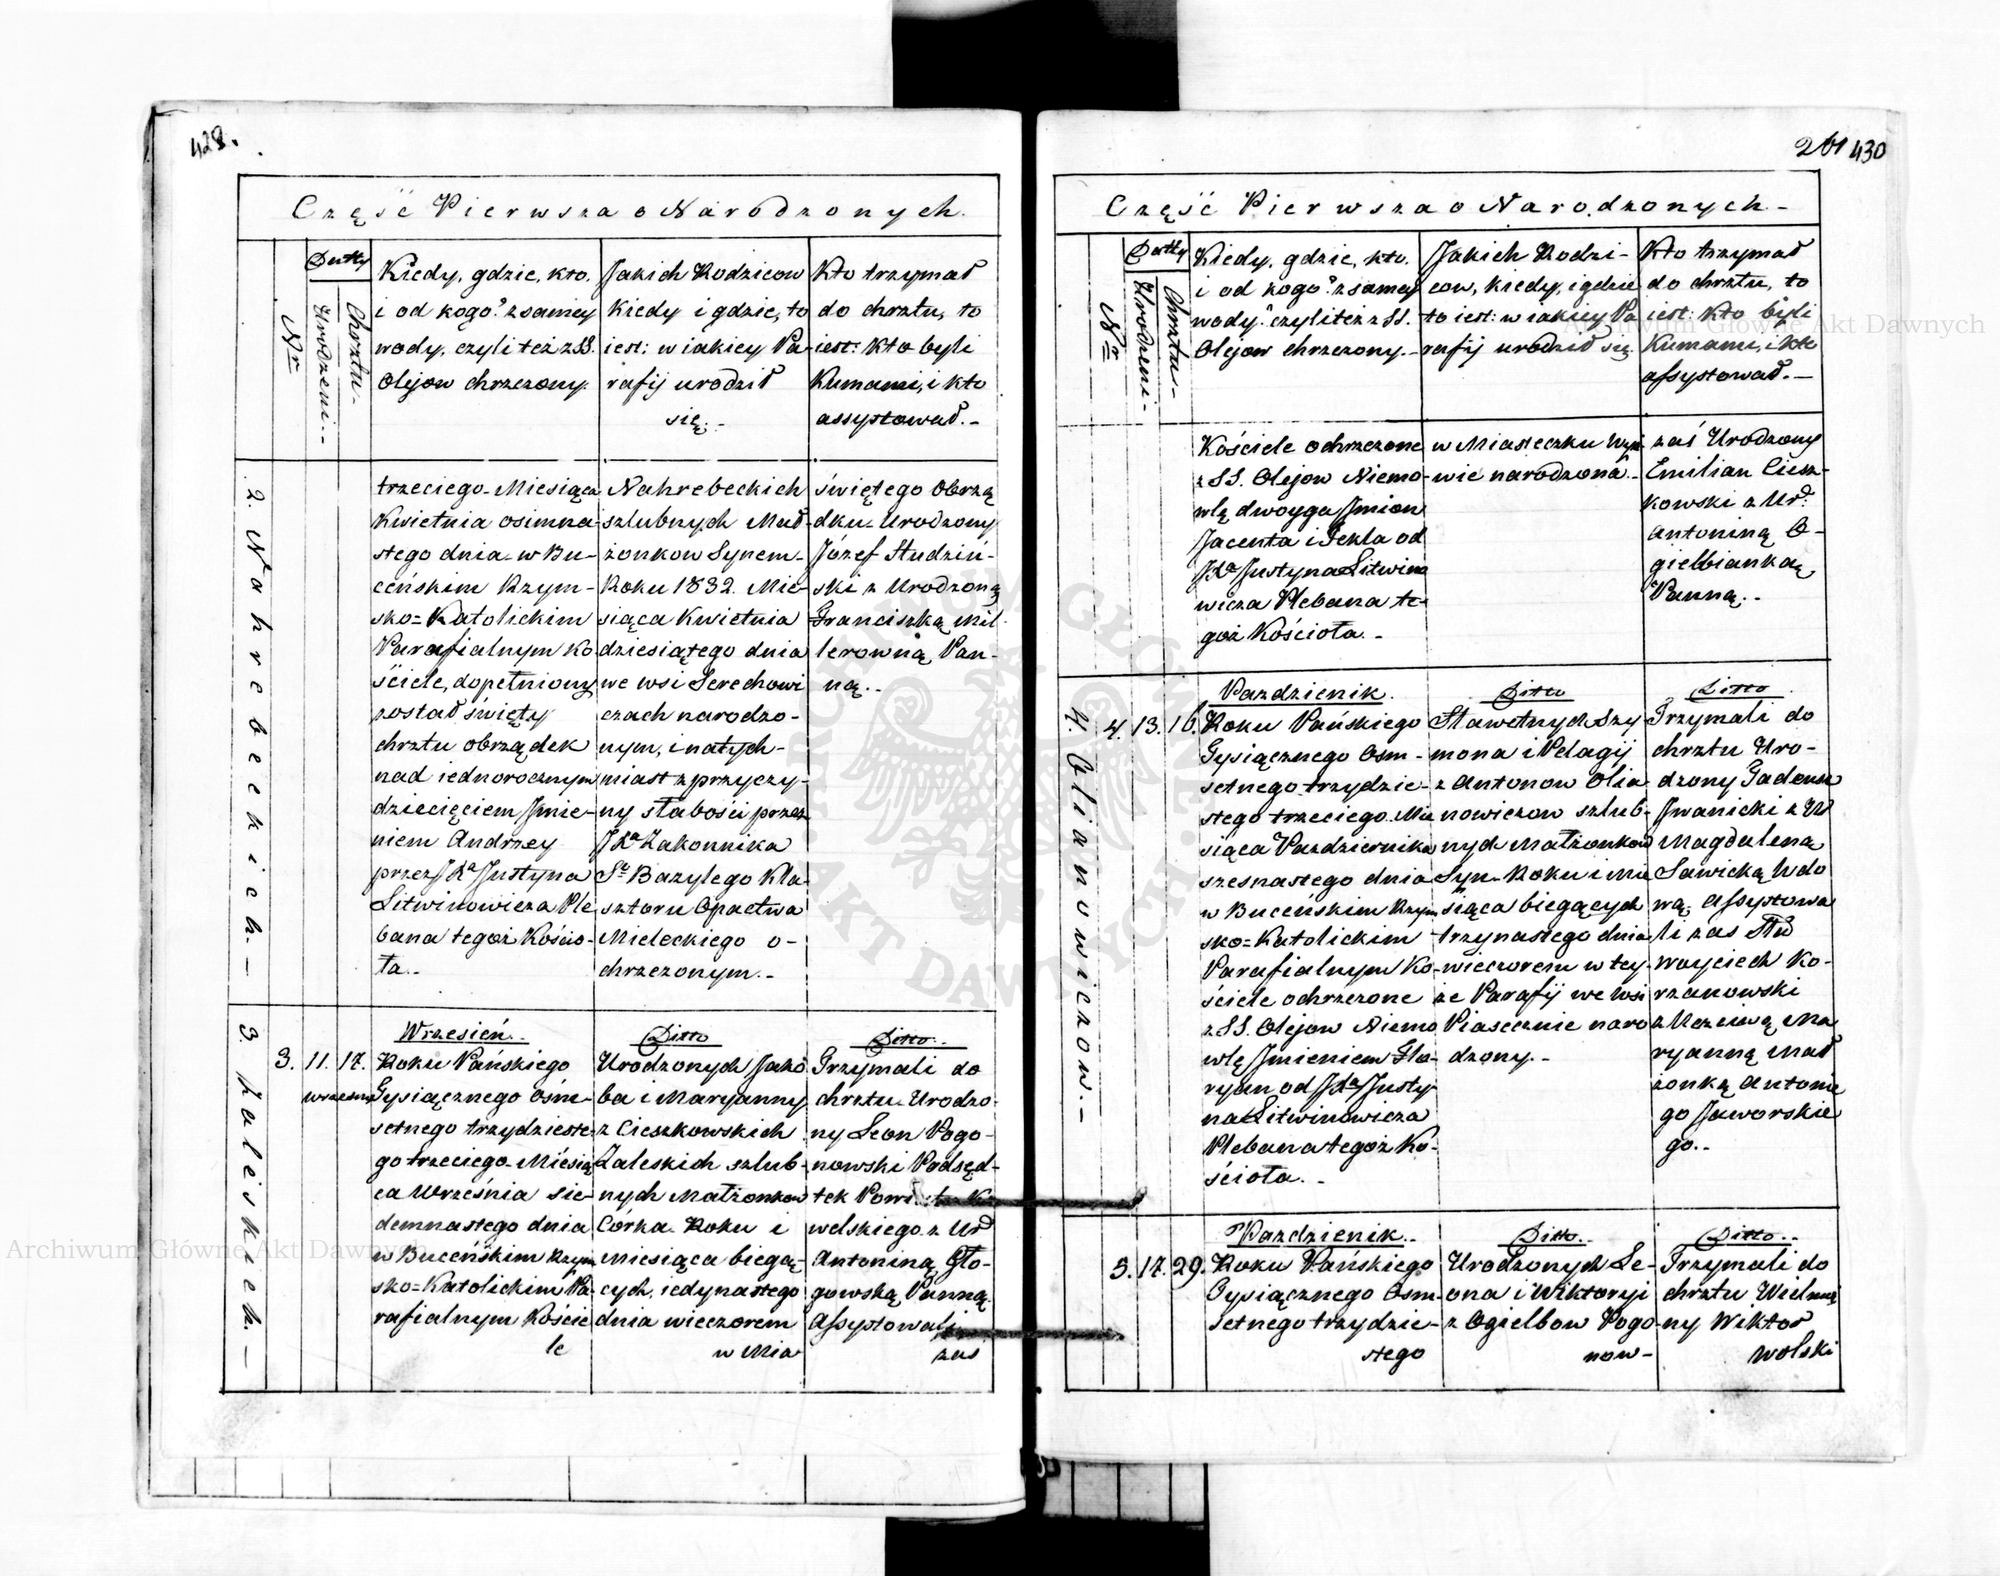 428.
Część Pierwsza o Narodzonych.
Nr
Datty
Urodzeni.-
Chrztu-
Kiedy, gdzie, kto.
i od kogo? z samey
wody, czyli też z SS.
Olejow chrzczony.
Jakich Rodzicow
Kiedy i gdzie, to
iest: w iakiey Pa-
rafij urodził
się.-
Kto trzymał
do chrztu, to
iest: Kto byli
Kumami, i kto
assystował.-
2. Nahrebeckich.-
trzeciego Miesiąca
Kwietnia osimna-
stego dnia w Bu-
ceńskim Rzym-
sko=Katolickim
Parafialnym Ko-
ściele, dopełniony
został święty
chrztu obrządek
nad iednorocznym
dziecięciem Jmie-
niem Andrzey
przez JXa Justyna
Litwinowicza Ple
bana tegoż Kościo-
ła.-
Nahrebeckich
szlubnych Mał-
żonkow Synem-
Roku 1832. Mie-
siąca Kwietnia
dziesiątego dnia
we wsi Serechowi
czach narodzo-
nym, i natych-
miast z przyczy-
ny słabości przez
JXa Zakonnika
So Bazylego Kla-
sztoru Opactwa
Mieleckiego o-
chrzczonym.-
świętego Obrzą
dku Urodzony
Józef Studziń-
ski z Urodzoną
Franciszką Mil-
lerowną Pan-
ną.-
3. Zaleskich.-
3. 11. 17.
wrzesnia
Wrzesień.-
Roku Pańskiego
Tysiącznego Ośm-
setnego trzydzieste-
go trzeciego Miesią
ca Września sie-
demnastego dnia
w Buceńskim Rzym
sko=Katolickim Pa-
rafialnym Koście
le
Ditto
Urodzonych Jakó
ba i Maryanny
z Cieszkowskich
Zaleskich szlub-
nych Małżonkow
Córka Roku i
Miesiąca biegą-
cych, iedynastego
dnia wieczorem
w Mia
Ditto.-
Trzymali do
chrztu Urodzo-
ny Leon Pogo-
nowski Podsęd-
tek Powi
welskiego z Ur
Antoniną Gło-
gowską Panną.
Assystowali
zaś
261 430
Część Pierwsza o Narodzonych-
Nr
Datty
Urodzeni-
Chrztu-
Kiedy, gdzie, kto.
i od kogo? z samey
wody? czyli też z SS.
Olejow chrzczony.-
Jakich Rodzi-
cow, kiedy, i gdzie
to iest: w iakiey Pa
rafij urodził się.
Kto trzymał
do chrztu, to
iest: Kto byli
Kumami, i kto
assystował.-
Kościele ochrzczone
z SS. Olejow Niemo-
wlę dwoyga Jmion
Jacenta i Tekla od
JXa Justyna Litwino
wicza Plebana te-
goż Kościoła.-
w Miasteczku
wie narodzona.-
zaś Urodzony
Emilian Ciesz-
kowski z Ur.
Antoniną O-
gielbianką
Panną.-
4. Olianowiczow.-
4. 13. 16.
Pazdziernik.
Roku Pańskiego
Tysiącznego Ośm-
setnego trzydzie-
stego trzeciego Mie
siąca Pazdziernika
szesnastego dnia
w Buceńskim Rzym
sko=Katolickim
Parafialnym Ko-
ściele ochrzczone
z SS. Olejow Niemo
wlę Jmieniem Flo-
ryan od JXa Justy
na Litwinowicza
Plebana tegoż Ko-
ścioła.-
Ditto
Sławetnych Szy
mona i Pelagij
z Antonow Olia
nowiczow szlub-
nych Małżonkow
Syn Roku i Mie
siąca biegących
trzynastego dnia
wieczorem w tey-
że Parafij we wsi
Piasecznie naro
dzony.-
Ditto
Trzymali do
chrztu Uro-
dzony Tadeusz
Jwanicki z Ur
Magdaleną
Sawicką Wdo
wą. Assystowa
li zas
Woyciech Ko-
rzanowski
z Uczciwą Ma
ryanną Mał
żonką Antonie
go Jaworskie
go.-
5. 17. 29.
Pazdziernik.-
Roku Pańskiego
Tysiącznego Osm-
setnego trzydzie-
stego
Ditto.-
Urodzonych Le-
ona i Wiktoryi
z Ogielbow Pogo-
now-
Ditto.-
Trzymali do
chrztu Wielmo
ny Wiktor
Wolski
Archiwum Główne Akt Dawnych
Archiwum Główne Akt Dawnych
ARCHIWUM GŁÓWNE AKT DAWNYCH